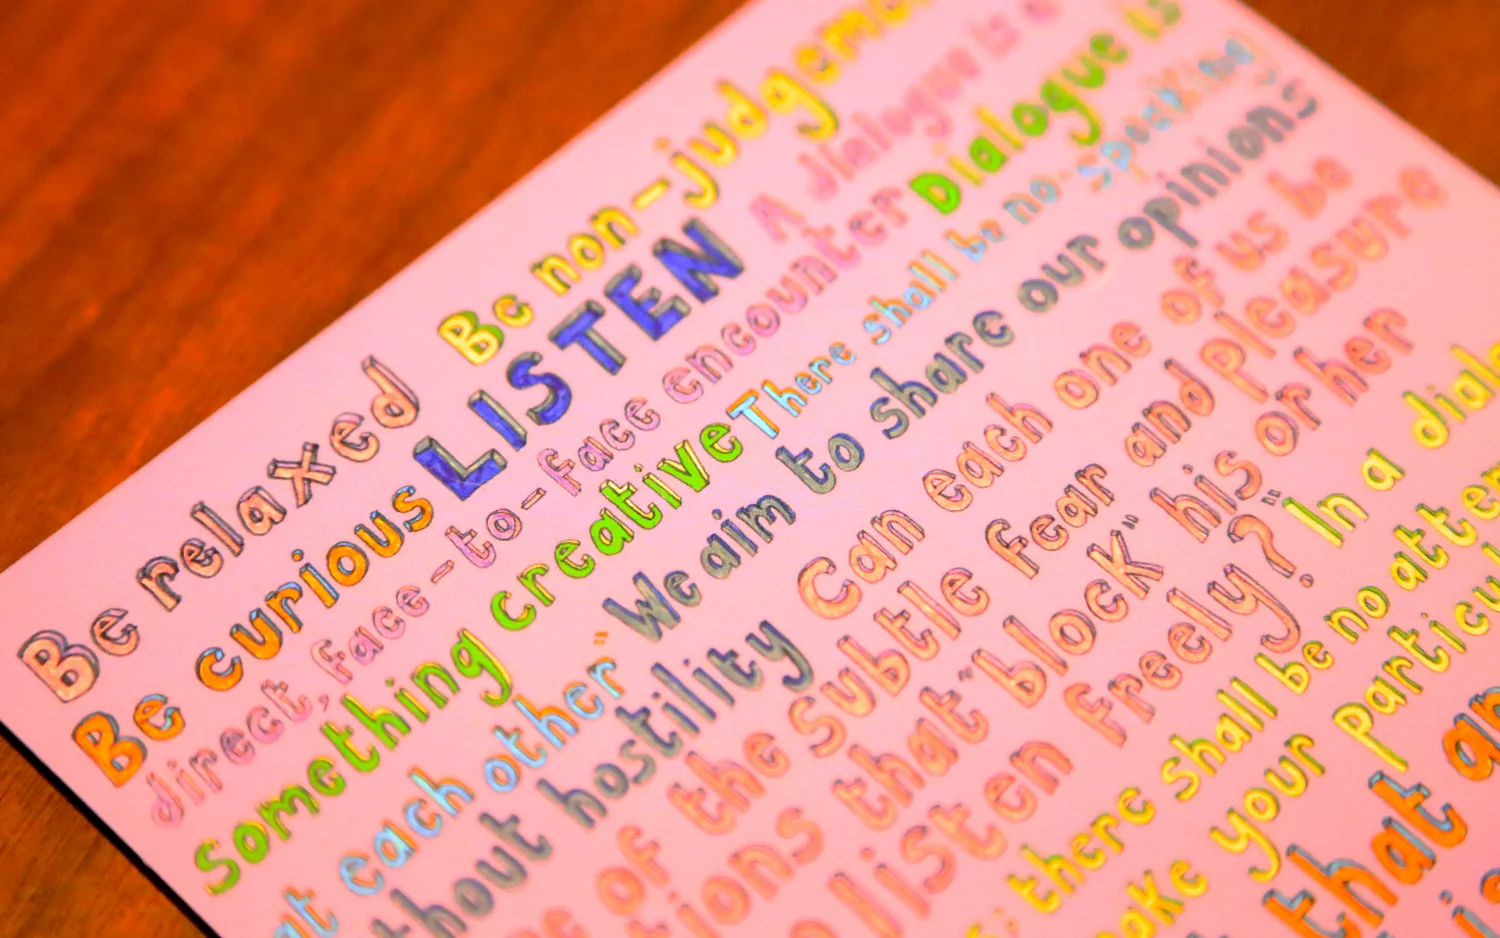 Be relaxed Be non-judgeme
Be curious LISTEN A dialogue is a
direct, face-to-face encounter Dialogue is
something creative There shall be no-speaking
at each other" We aim to share our opinions
thout hostility Can each one of us be
of the subtle fear and pleasure
tions that "block" his or her
listen freely?" In a dialo
there shall be no attem
make your particul
that an